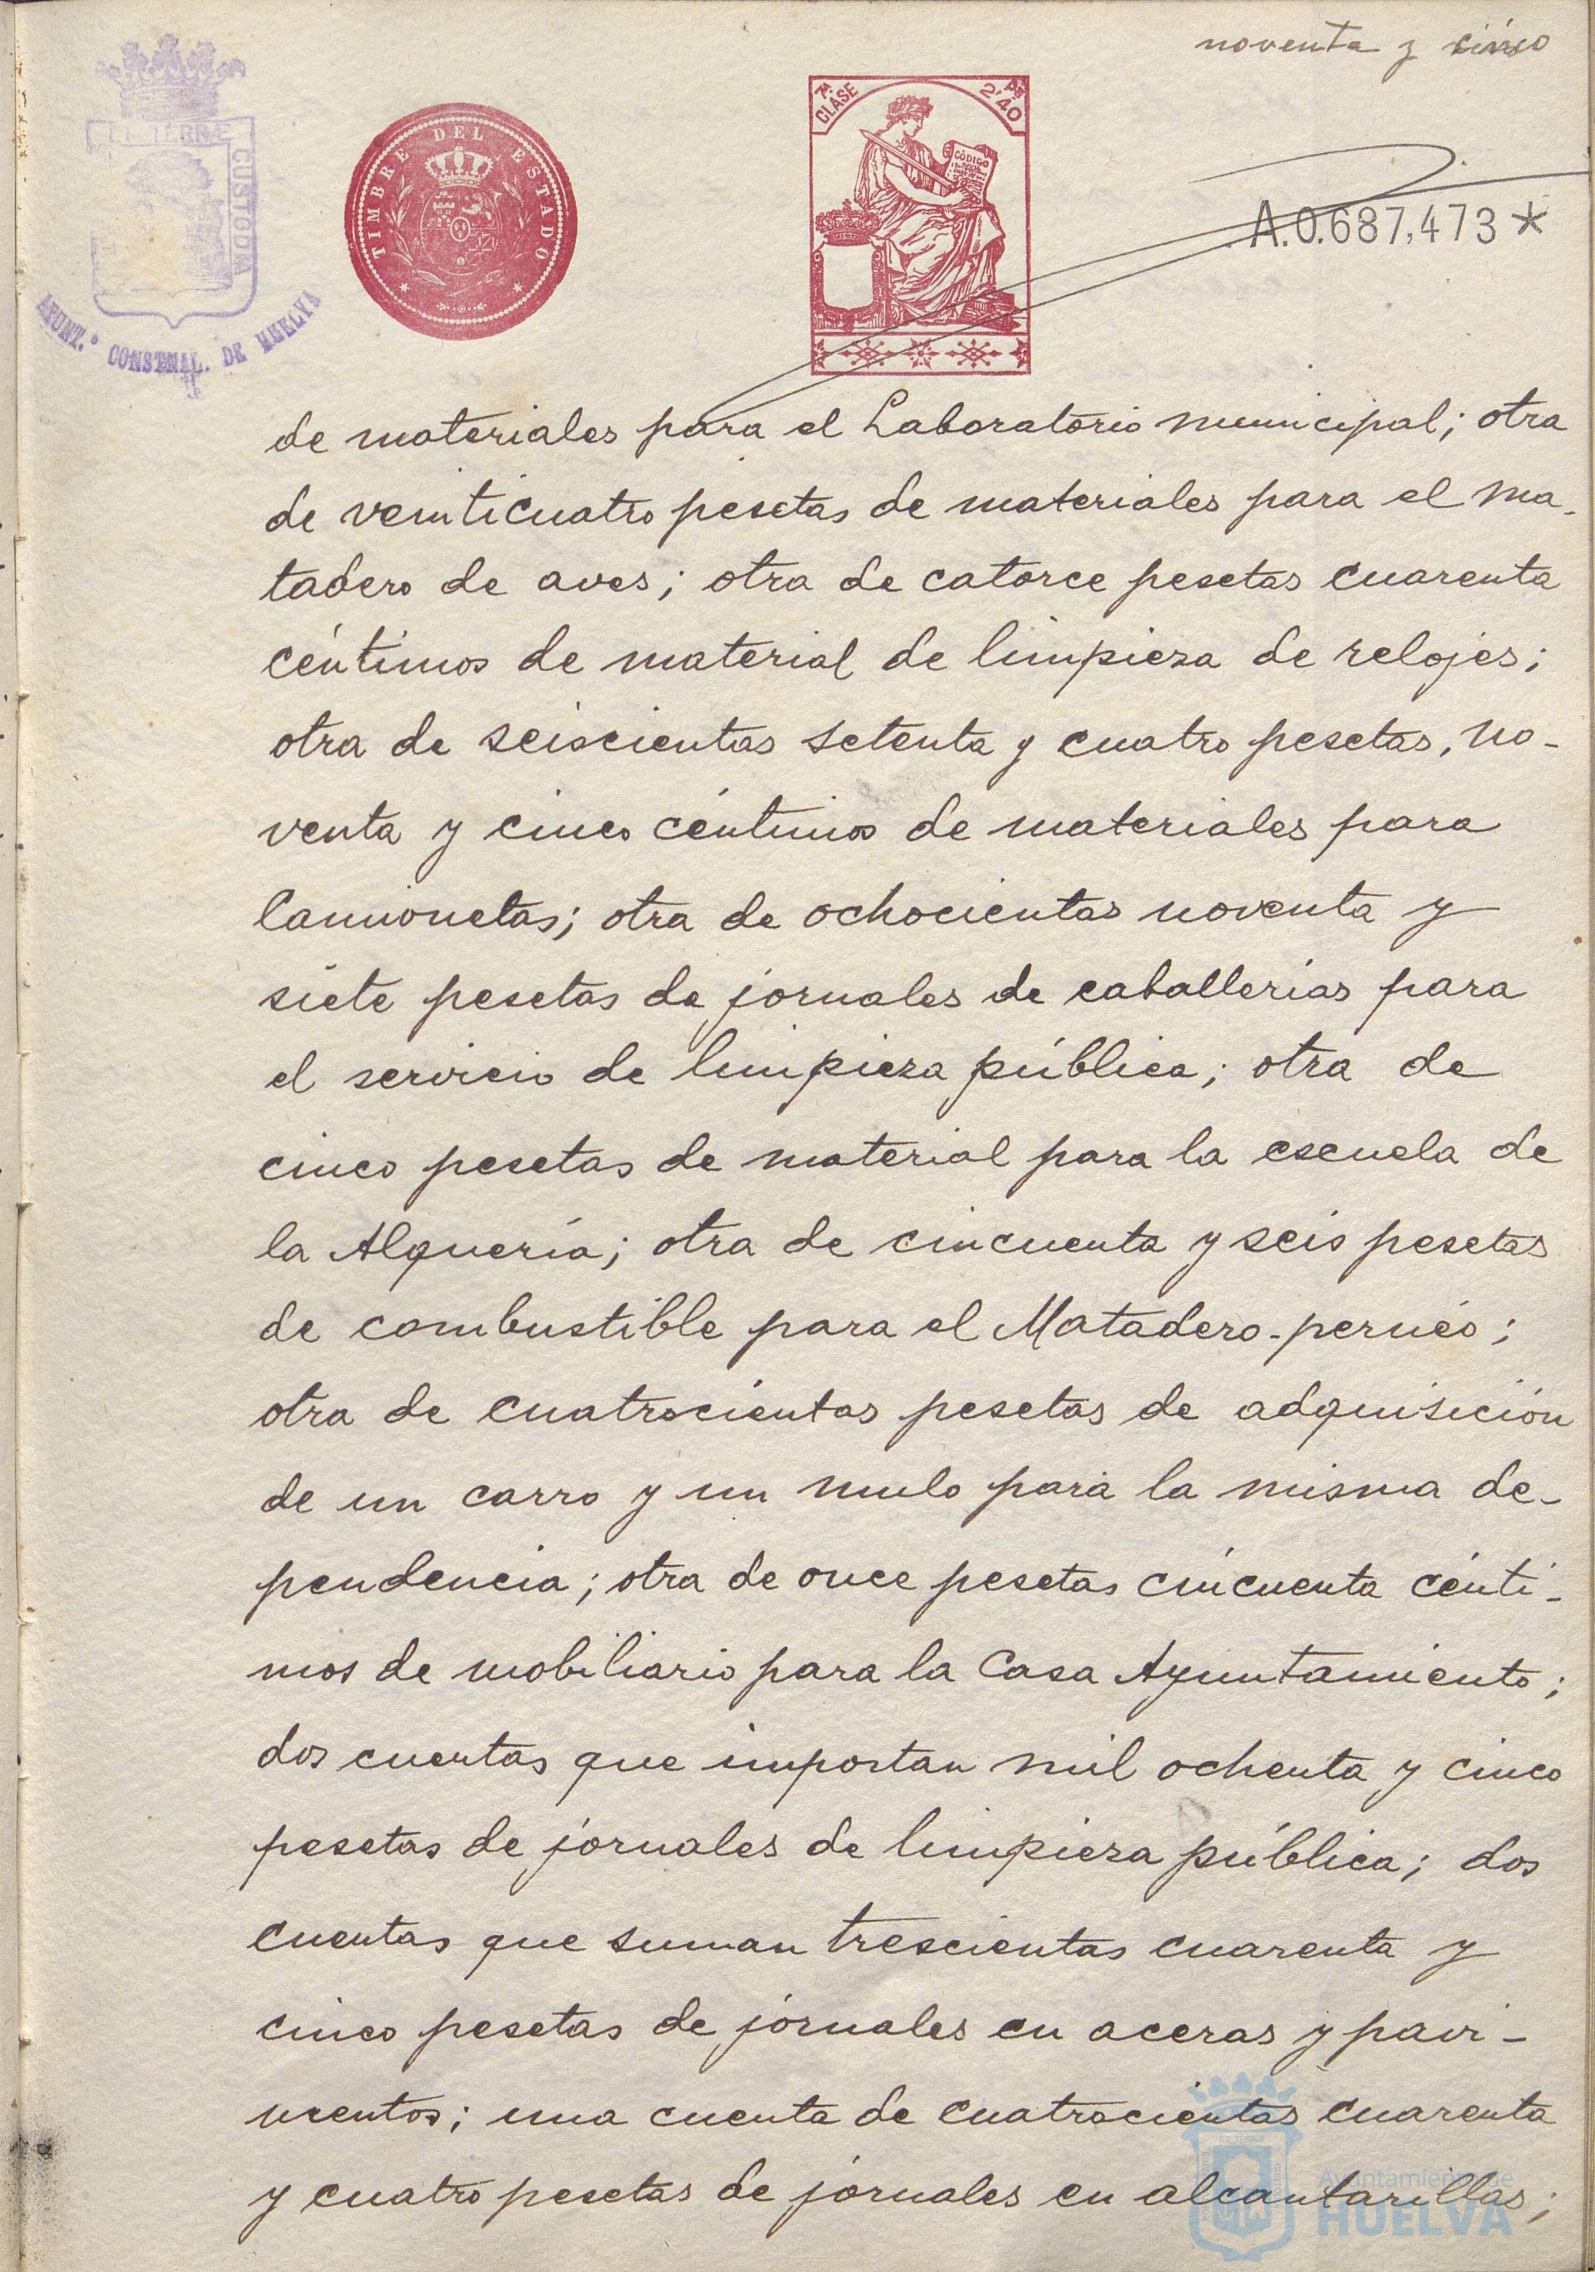 noventa y cinco
TIMBRE DEL ESTADO
7ª CLASE
2'40 Pts
CÓDIGO
CUSTODIA
AYUNT.º CONSTNAL. DE HUELVA
A.0.687,473*
de materiales para el Laboratorio municipal; otra
de veinticuatro pesetas de materiales para el ma-
tadero de aves; otra de catorce pesetas cuarenta
céntimos de material de limpieza de relojes;
otra de seiscientas setenta y cuatro pesetas, no-
venta y cinco céntimos de materiales para
Camionetas; otra de ochocientas noventa y
siete pesetas de jornales de caballerías para
el servicio de limpieza pública; otra de
cinco pesetas de material para la escuela de
la Alquería; otra de cincuenta y seis pesetas
de combustible para el Matadero-pernéo;
otra de cuatrocientas pesetas de adquisición
de un carro y un mulo para la misma de-
pendencia; otra de once pesetas cincuenta cénti-
mos de mobiliario para la Casa Ayuntamiento;
dos cuentas que importan mil ochenta y cinco
pesetas de jornales de limpieza pública; dos
cuentas que suman trescientas cuarenta y
cinco pesetas de jornales en aceras y pavi-
mentos; una cuenta de cuatrocientas cuarenta
y cuatro pesetas de jornales en alcantarillas;
Ayuntamiento de
HUELVA